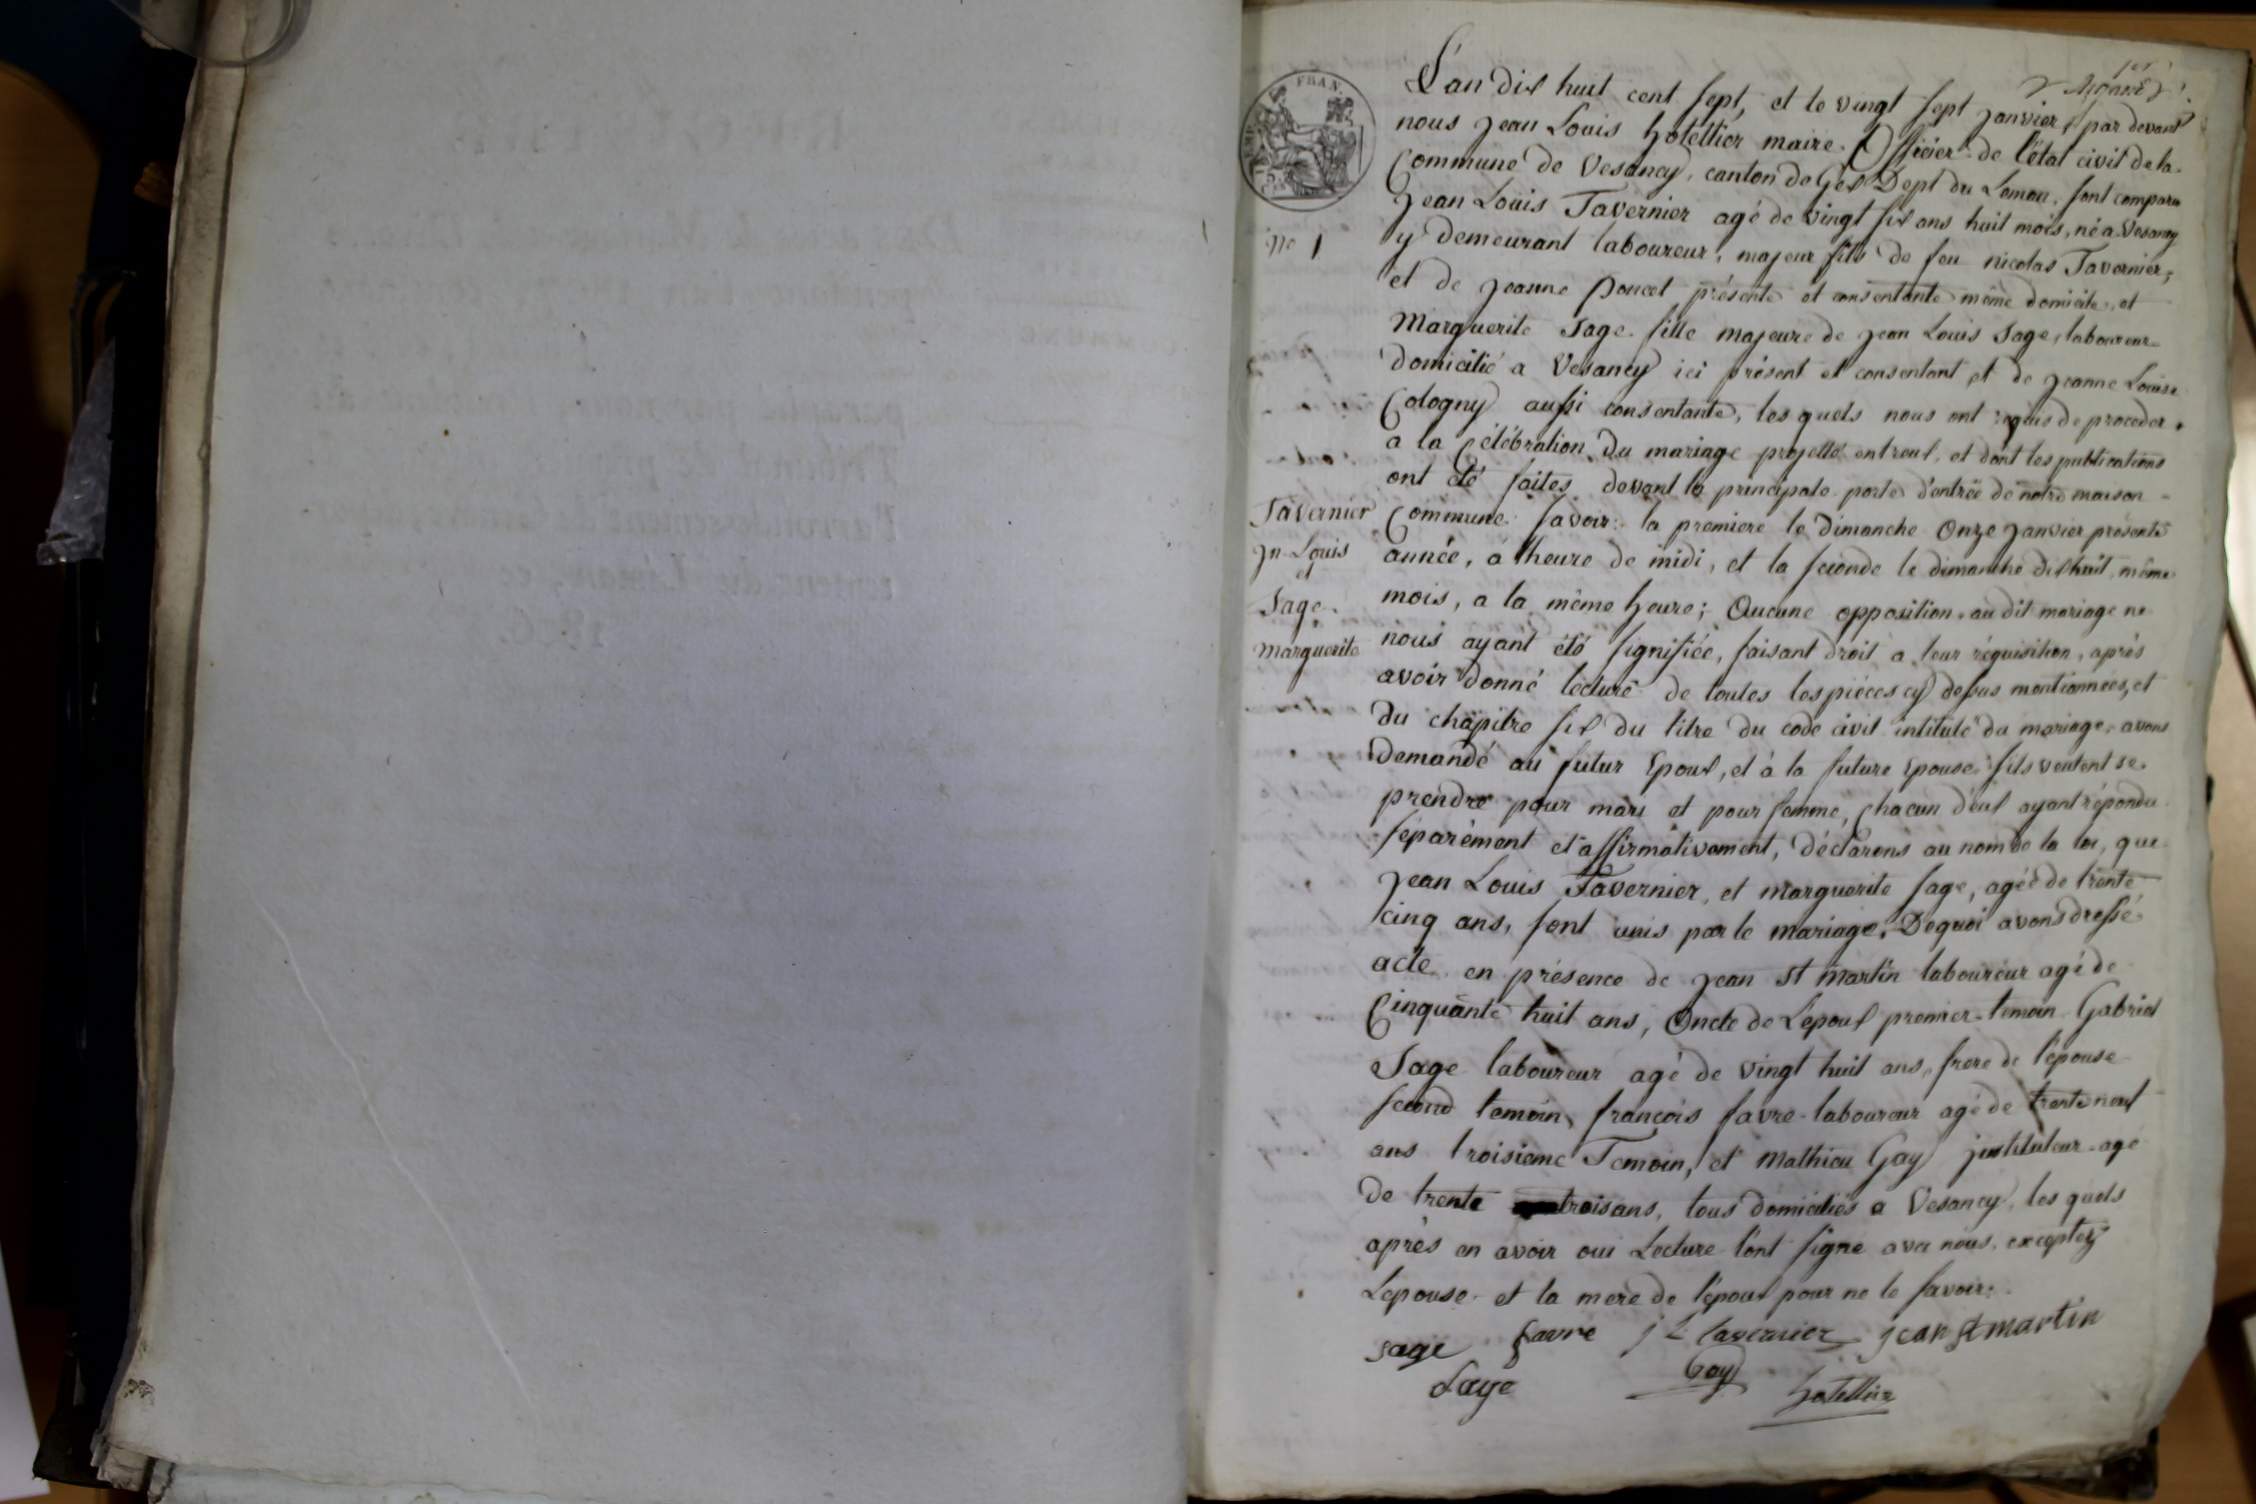 1er
L'an dix huit cent sept, et le vingt sept janvier, par devant
nous jean Louis hotellier maire. Officier de l'état civil de la
Commune de Vesancy, canton de Gex Dept du Leman, sont comparu
jean Louis Tavernier agé de vingt six ans huit mois, né a Vesancy
No 1
y demeurant laboureur, majeur fils de feu nicolas Tavernier,
et de jeanne Poncet présente et consentante même domicile, et
Marguerite Sage fille majeure de jean Louis Sage, laboureur
domicilié a Vesancy ici présent et consentant et de jeanne Louise
Cologny aussi consentante, les quels nous ont requis de proceder
a la Célébration du mariage projetté entreux, et dont les publications
ont été faites devant la principale porte d'entrée de notre maison
Commune savoir: la premiere le Dimanche Onze janvier présente
année, à l'heure de midi, et la seconde le dimanche dixhuit même
mois, a la même heure; Aucune opposition au dit mariage ne
nous ayant été signifiée, faisant droit a leur réquisition, après
avoir donné lecture de toutes les piéces cy dessus mentionnées, et
du chapitre six du titre du code civil intitulé du mariage, avons
demandé au futur Epoux, et à la future Epouse s'ils veulent se
prendre pour mari et pour femme, chacun d'eux ayant répondu
séparément et affirmativement, déclarons au nom de la loi, que
jean Louis Tavernier, et marguerite Sage, agée de trente
cinq ans, sont unis par le mariage. De quoi avons dressé
acte en présence de jean St martin laboureur agé de
Cinquante huit ans, Oncle de L'epoux premier temoin Gabriel
Sage laboureur agé de vingt huit ans, frere de l'épouse
second temoin, françois favre laboureur agé de trente neuf
ans troisieme Temoin, et Mathieu Gay instituteur agé
de trente trois ans, tous domiciliés a Vesancy, les quels
après en avoir oui Lecture l'ont signé avec nous, exceptez
L'epouse et la mere de l'époux pour ne le savoir.
Tavernier
Jn Louis
et
Sage
Marguerite
sage favre j L tavernier jean st martin
Sage Gay hotellier